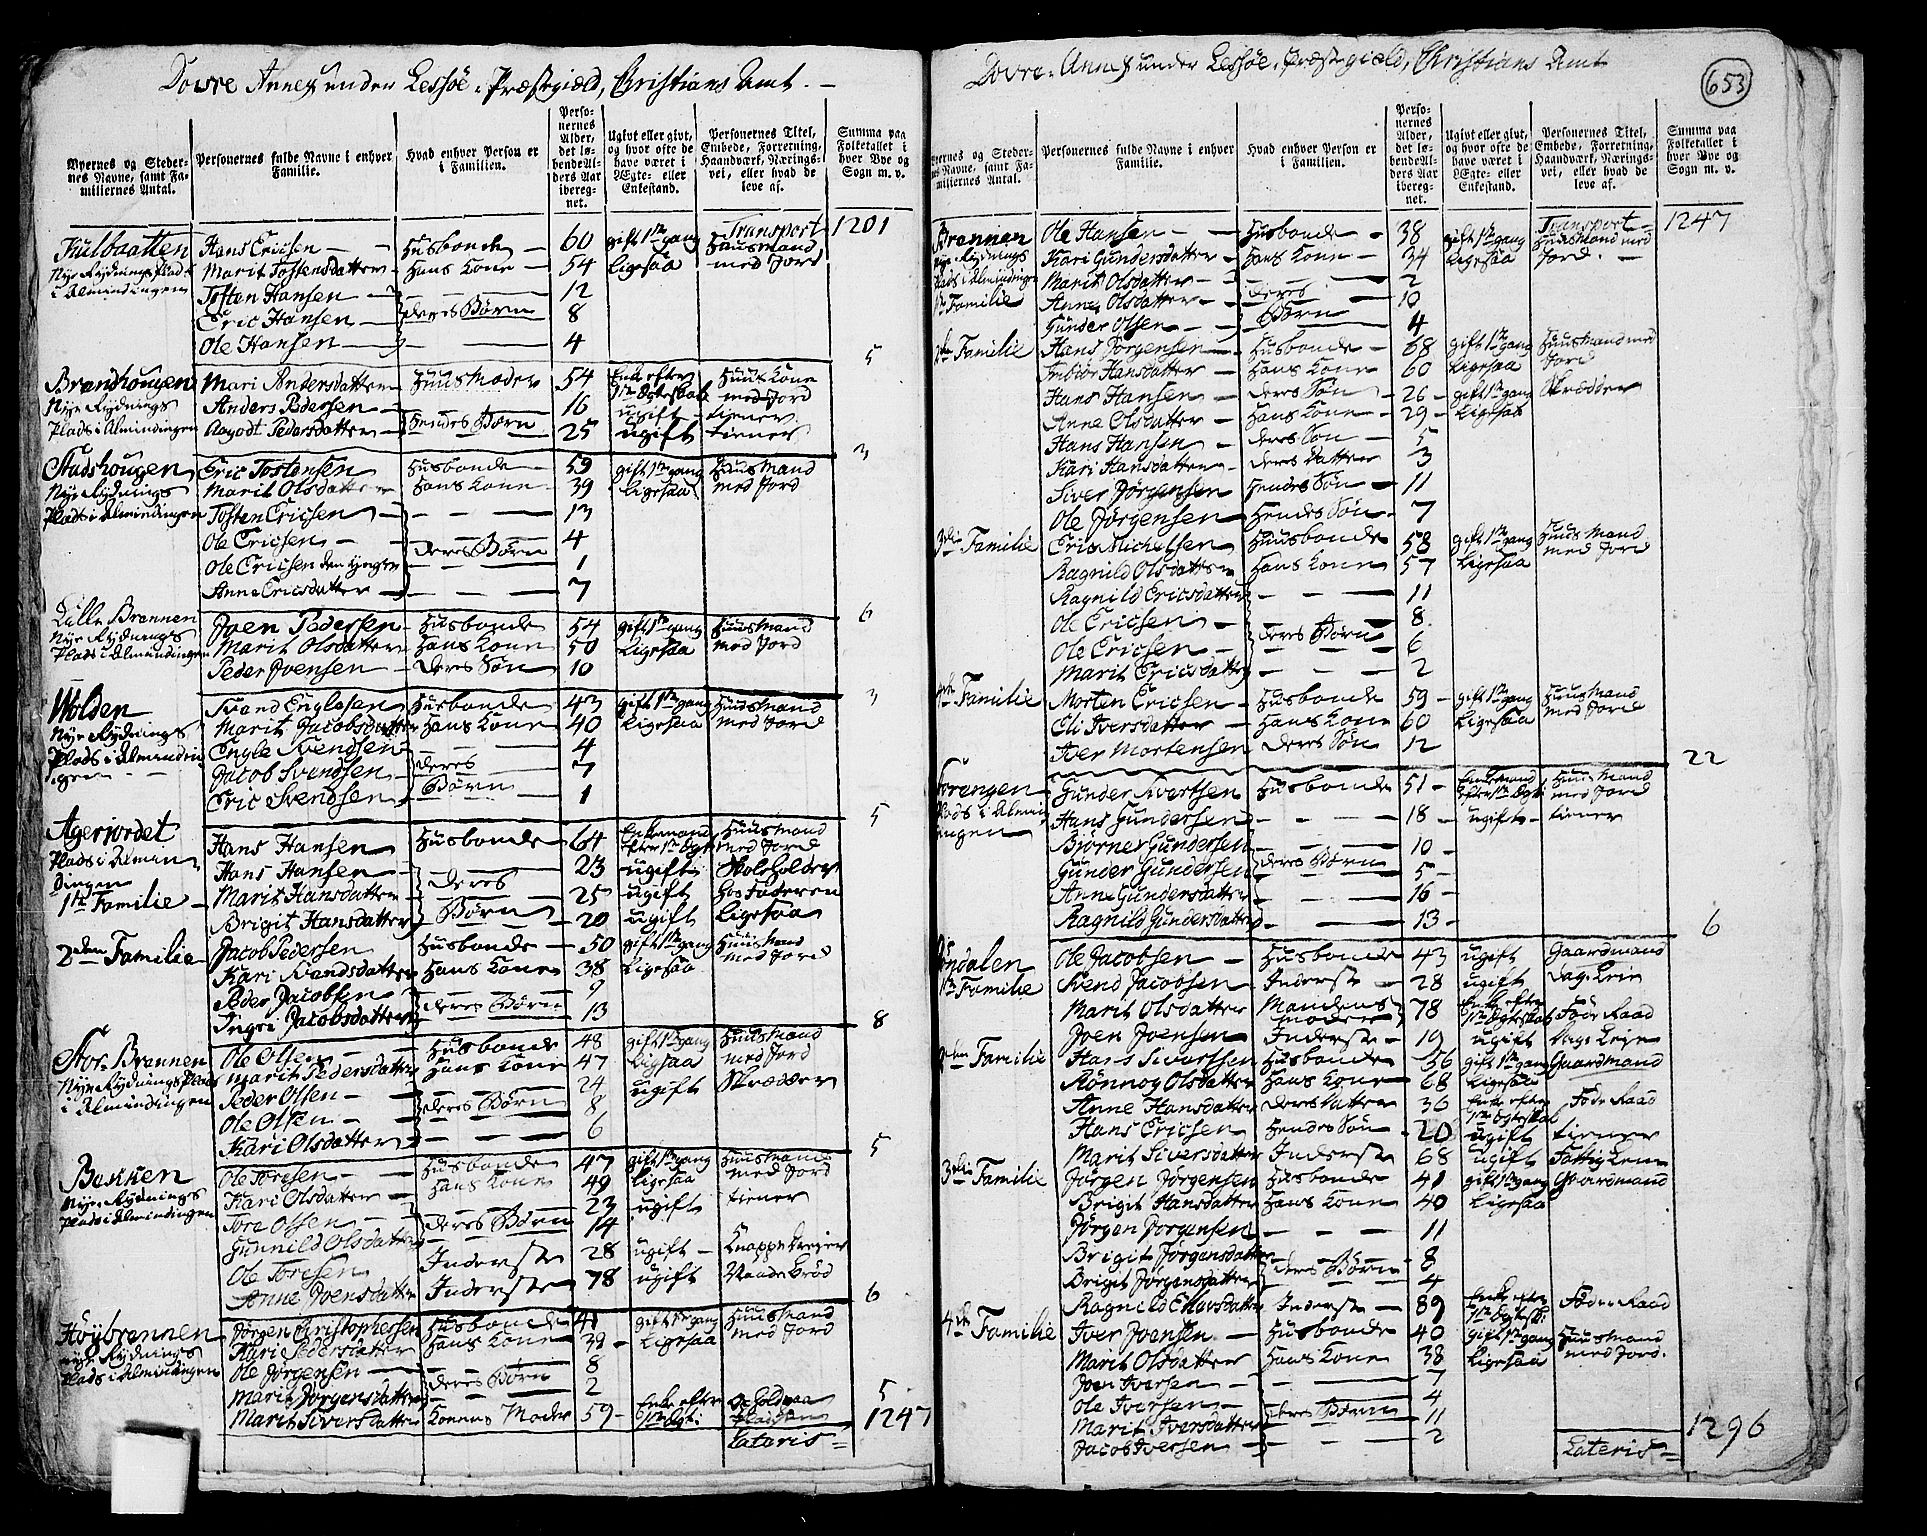 Dovre Annex under Lessøe Præstegield, Christians Amt.
Byernes og Stedernes Navne, samt Familiernes Antal.
Personernes fulde Navne i enhver Familie.
Hvad enhver Person er i Familien.
Personernes Alder, det løbende Alders Aar iberegnet.
Ugivt eller givt, og hvor ofte de have været i Ægte- eller Enkestand.
Personernes Titel, Embede, Forretning, Haandværk, Næringsvei, eller hvad de leve af.
Summa paa Folketallet i hver Bye og Sogn m. v.
Transport 1201
Hans Ericsen Husbonde 60 gift 1te gang Huusmand
Nye Rydnings Plads Marit Tostensdatter Hans Kone 54 Ligesaa med Jord
i Almindingen
Tosten Hansen 12
Eric Hansen deres Børn 8
Ole Hansen 4
5
Brandhougen Mari Andersdatter Huusmoder 54 Enke efter Huuskone
Nye Rydnings Anders Pedersen 16 1te Egteskab med Jord
Plads i Almindingen Aagodt Pedersdatter Hendes Børn 25 ugift tiener
3
Stadshougen Eric Tostensen Husbonde 59 gift 1te gang Huusmand
Nye Rydnings Marit Olsdatter Hans Kone 39 Ligesaa med Jord
Plads i Almindingen Tosten Ericsen 13
Ole Ericsen 4
Ole Ericsen den yngre deres Børn 1
Anne Ericsdatter 7
6
Lille Brennen Joen Pedersen Husbonde 54 gift 1te gang Huusmand
Nye Rydnings Marit Olsdatter Hans Kone 50 Ligesaa med Jord
Plads i Almindingen Peder Joensen deres Søn 10
3
Wolden Svend Englesen Husbonde 43 gift 1te gang Huusmand
Nye Rydnings Marit Jacobsdatter Hans Kone 40 Ligesaa med Jord
Plads i Almindingen Engle Svendsen 4
Jacob Svendsen deres 7
Eric Svendsen Børn 1
5
Agerjordet Hans Hansen Husbonde 64 Enkemand Huusmand
Plads i Almindingen efter 1te Egt: med Jord
Hans Hansen 23 ugift Skoleholder
1te Familie Marit Hansdatter deres 25 ugift Hos Faderen
Brigit Hansdatter Børn 20 ugift Ligesaa
2den Familie Jacob Pedersen Husbonde 50 gift 1te gang Huusmand
Kari Svendsdatter Hans Kone 38 Ligesaa med Jord
Peder Jacobsen 9
Ingri Jacobsdatter deres Børn 13
8
Stor-Brennen Ole Olsen Husbonde 48 gift 1te gang Huusmand
Nye Rydnings Plads Marit Pedersdatter Hans Kone 47 Ligesaa med Jord
i Almindingen Peder Olsen 24 ugift Skrædder
Ole Olsen deres Børn 8
Kari Olsdatter 6
5
Bakken Ole Toresen Husbonde 47 gift 1te gang Huusmand
Nye Rydnings Kari Olsdatter Hans Kone 49 Ligesaa med Jord
Plads i Almindingen Tore Olsen 23 ugift tiener
Gunnild Olsdatter deres Børn 14
Ole Toresen Inderste 28 ugift
Anne Joensdatter Inderste 78 ugift
6
Høybrennen Jørgen Christophersen Husbonde 41 gift 1te gang Huusmand
nye Rydnings Kari Pedersdatter Hans Kone 39 Ligesaa med Jord
Plads i Almindingen Ole Jørgensen 8
Marit Jørgensdatter deres Børn 2
5
Marit Siversdatter Konens Moder 59 Enke efter 1te Egt:
1247
Lateris
Dovre Annex under Lessøe Præstegield, Christians Amt
653
Byernes og Stedernes Navne, samt Familiernes Antal.
Personernes fulde Navne i enhver Familie.
Hvad enhver Person er i Familien.
Personernes Alder, det løbende Alders Aar iberegnet.
Ugivt eller givt, og hvor ofte de have været i Ægte- eller Enkestand.
Personernes Titel, Embede, Forretning, Haandværk, Næringsvei, eller hvad de leve af.
Summa paa Folketallet i hver Bye og Sogn m. v.
Transport 1247
Brennen Ole Hansen Husbonde 38 gift 1te gang Huusmand med
Nye Rydnings Kari Gundersdatter Hans Kone 34 Ligesaa Jord
Plads i Almindingen Marit Olsdatter 2
1te Familie Anne Olsdatter deres 10
Gunder Olsen Børn 4
2den Familie Hans Jørgensen Husbonde 68 gift 1te gang Huusmand med
Hansdatter Hans Kone 60 Ligesaa Jord
Hans Hansen deres Søn 26 gift 1te gang Skrædder
Anne Olsdatter Hans Kone 29 Ligesaa
Hans Hansen deres Søn 5
Kari Hansdatter deres Datter 3
Siver Jørgensen Hendes Søn 11
Ole Jørgensen Hendes Søn 7
3die Familie Eric Michelsen Husbonde 58 gift 1te gang Huusmand
Ragnild Olsdatter Hans Kone 57 Ligesaa med Jord
Ragnild Ericsdatter 11
Ole Ericsen 8
Ole Ericsen deres Børn 6
Marit Ericsdatter 2
4de Familie Morten Ericsen Husbonde 59 gift 1te gang Huusmand
Eli Iversdatter Hans Kone 60 Ligesaa med Jord
Iver Mortensen deres Søn 12
22
Gunder Sivertsen Husbonde 51 Enkemand Huusmand
Plads i Almindingen efter 1te Egt: med Jord
Hans Gundersen 18 ugift tiener
Bjørner Gundersen 10
Gunder Gundersen deres Børn 5
Anne Gundersdatter 16
Ragnild Gundersdatter 13
6
Ole Jacobsen Husbonde 43 ugift Gaardmand
1te Familie Svend Jacobsen Inderste 28 ugift Dag Leie
Marit Olsdatter Mandens Moder 78 Enke efter 1te Egteskab Føde Raad
Joen Joensen Inderste 19 ugift Dag Leie
2den Familie Hans Sivertsen Husbonde 56 gift 1te gang Gaardmand
Rønnog Olsdatter Hans Kone 68 Ligesaa
Anne Hansdatter deres Datter 36 Enke efter 1te Egteskab Føde Raad
Hans Ericsen Hendes Søn 20 ugift tiener
Marit Siversdatter Inderste 68 ugift Fattig Lem
3die Familie Jørgen Jørgensen Husbonde 41 gift 1te gang Gaardmand
Brigit Hansdatter Hans Kone 40 Ligesaa
Jørgen Jørgensen 11
Brigit Jørgensdatter deres Børn 8
Brigit Jørgensdatter 4
Ragnild Inderste 89 Enke efter 1te Egtesk: Føde Raad
4de Familie Iver Joensen Husbonde 40 gift 1te gang Huusmand
Marit Olsdatter Hans Kone 38 Ligesaa med Jord.
Joen Iversen 7
Ole Iversen 4
Marit Iversdatter deres Børn 11
Jacob Iversen 2
1296
Lateris